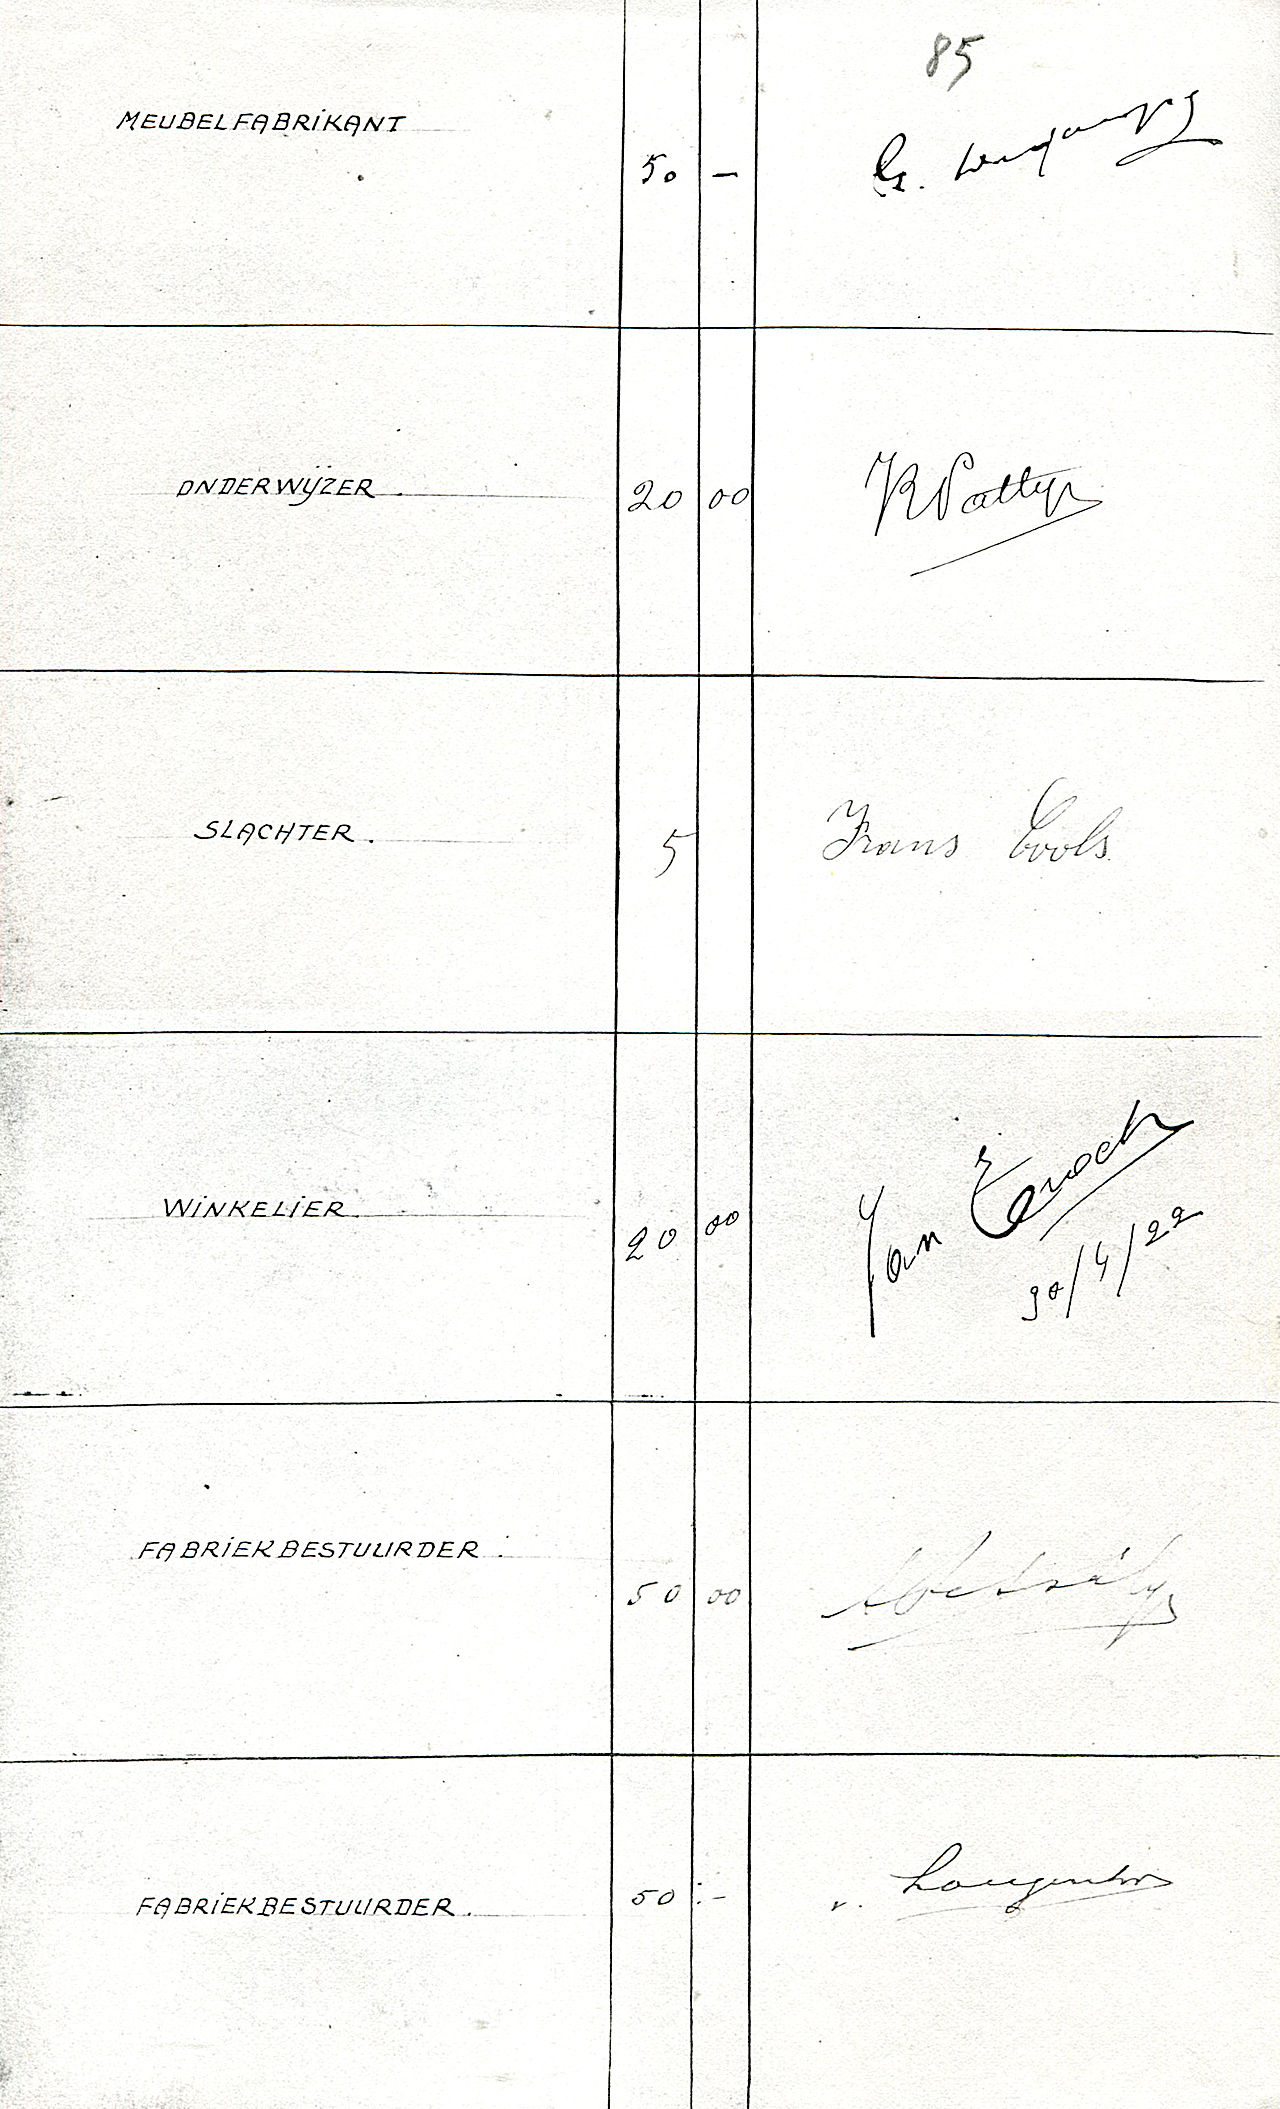 85
MEUBELFABRIKANT
50 –
G.
ONDERWIJZER .
20 00
Pattyn
SLACHTER .
5
Frans Cools
WINKELIER .
20 00
Jan Enoch
30/4/22
FABRIEKBESTUURDER .
50 00
FABRIEKBESTUURDER .
50 : –